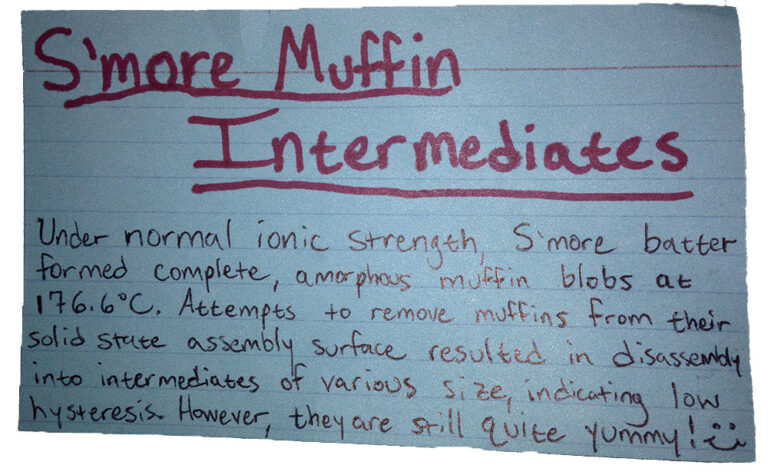 S'more Muffin
Intermediates
Under normal ionic strength, S'more batter
formed complete, amorphous muffin blobs at
176.6°C. Attempts to remove muffins from their
solid state assembly surface resulted in disassembly
into intermediates of various size, indicating low
hysteresis. However, they are still quite yummy!